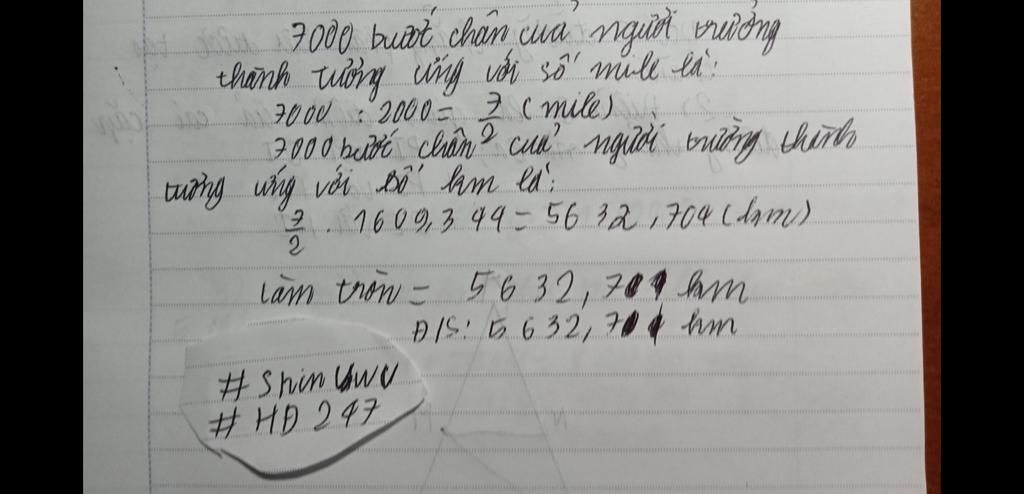 7000 bước chân của người trưởng
thành tương ứng với số mile là:
7000 : 2000 = 7/2 (mile)
7000 bước chân của người trưởng thành
tương ứng với số km là:
7/2 . 1609,344 = 5632,704 (km)
Làm tròn = 5632,701 km
Đ/S: 5632,701 km
# Shin UwU
# HĐ 247